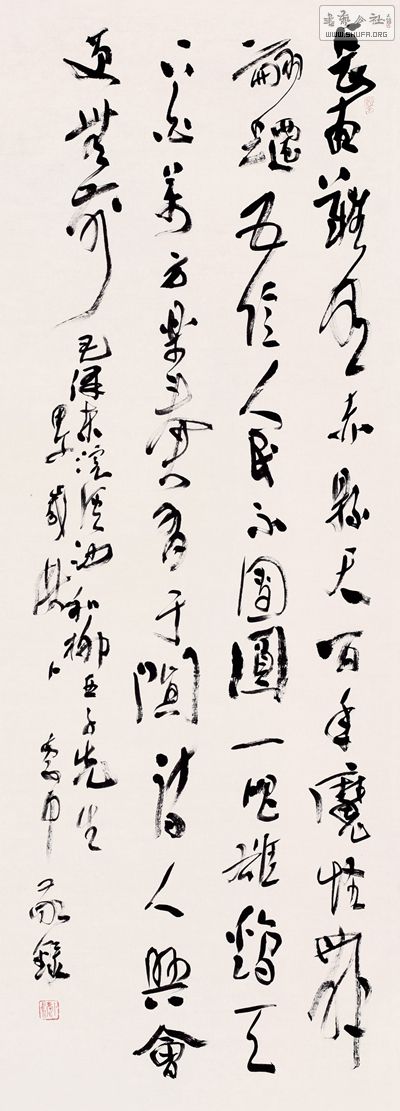 書藝公社
WWW.SHUFA.ORG
長夜難明赤縣天百年魔怪舞
翩躚五億人民不團圓一唱雄雞天
下白萬方樂奏有于闐詩人興會
更無前
毛澤東浣溪沙和柳亞子先生
歲 敬錄